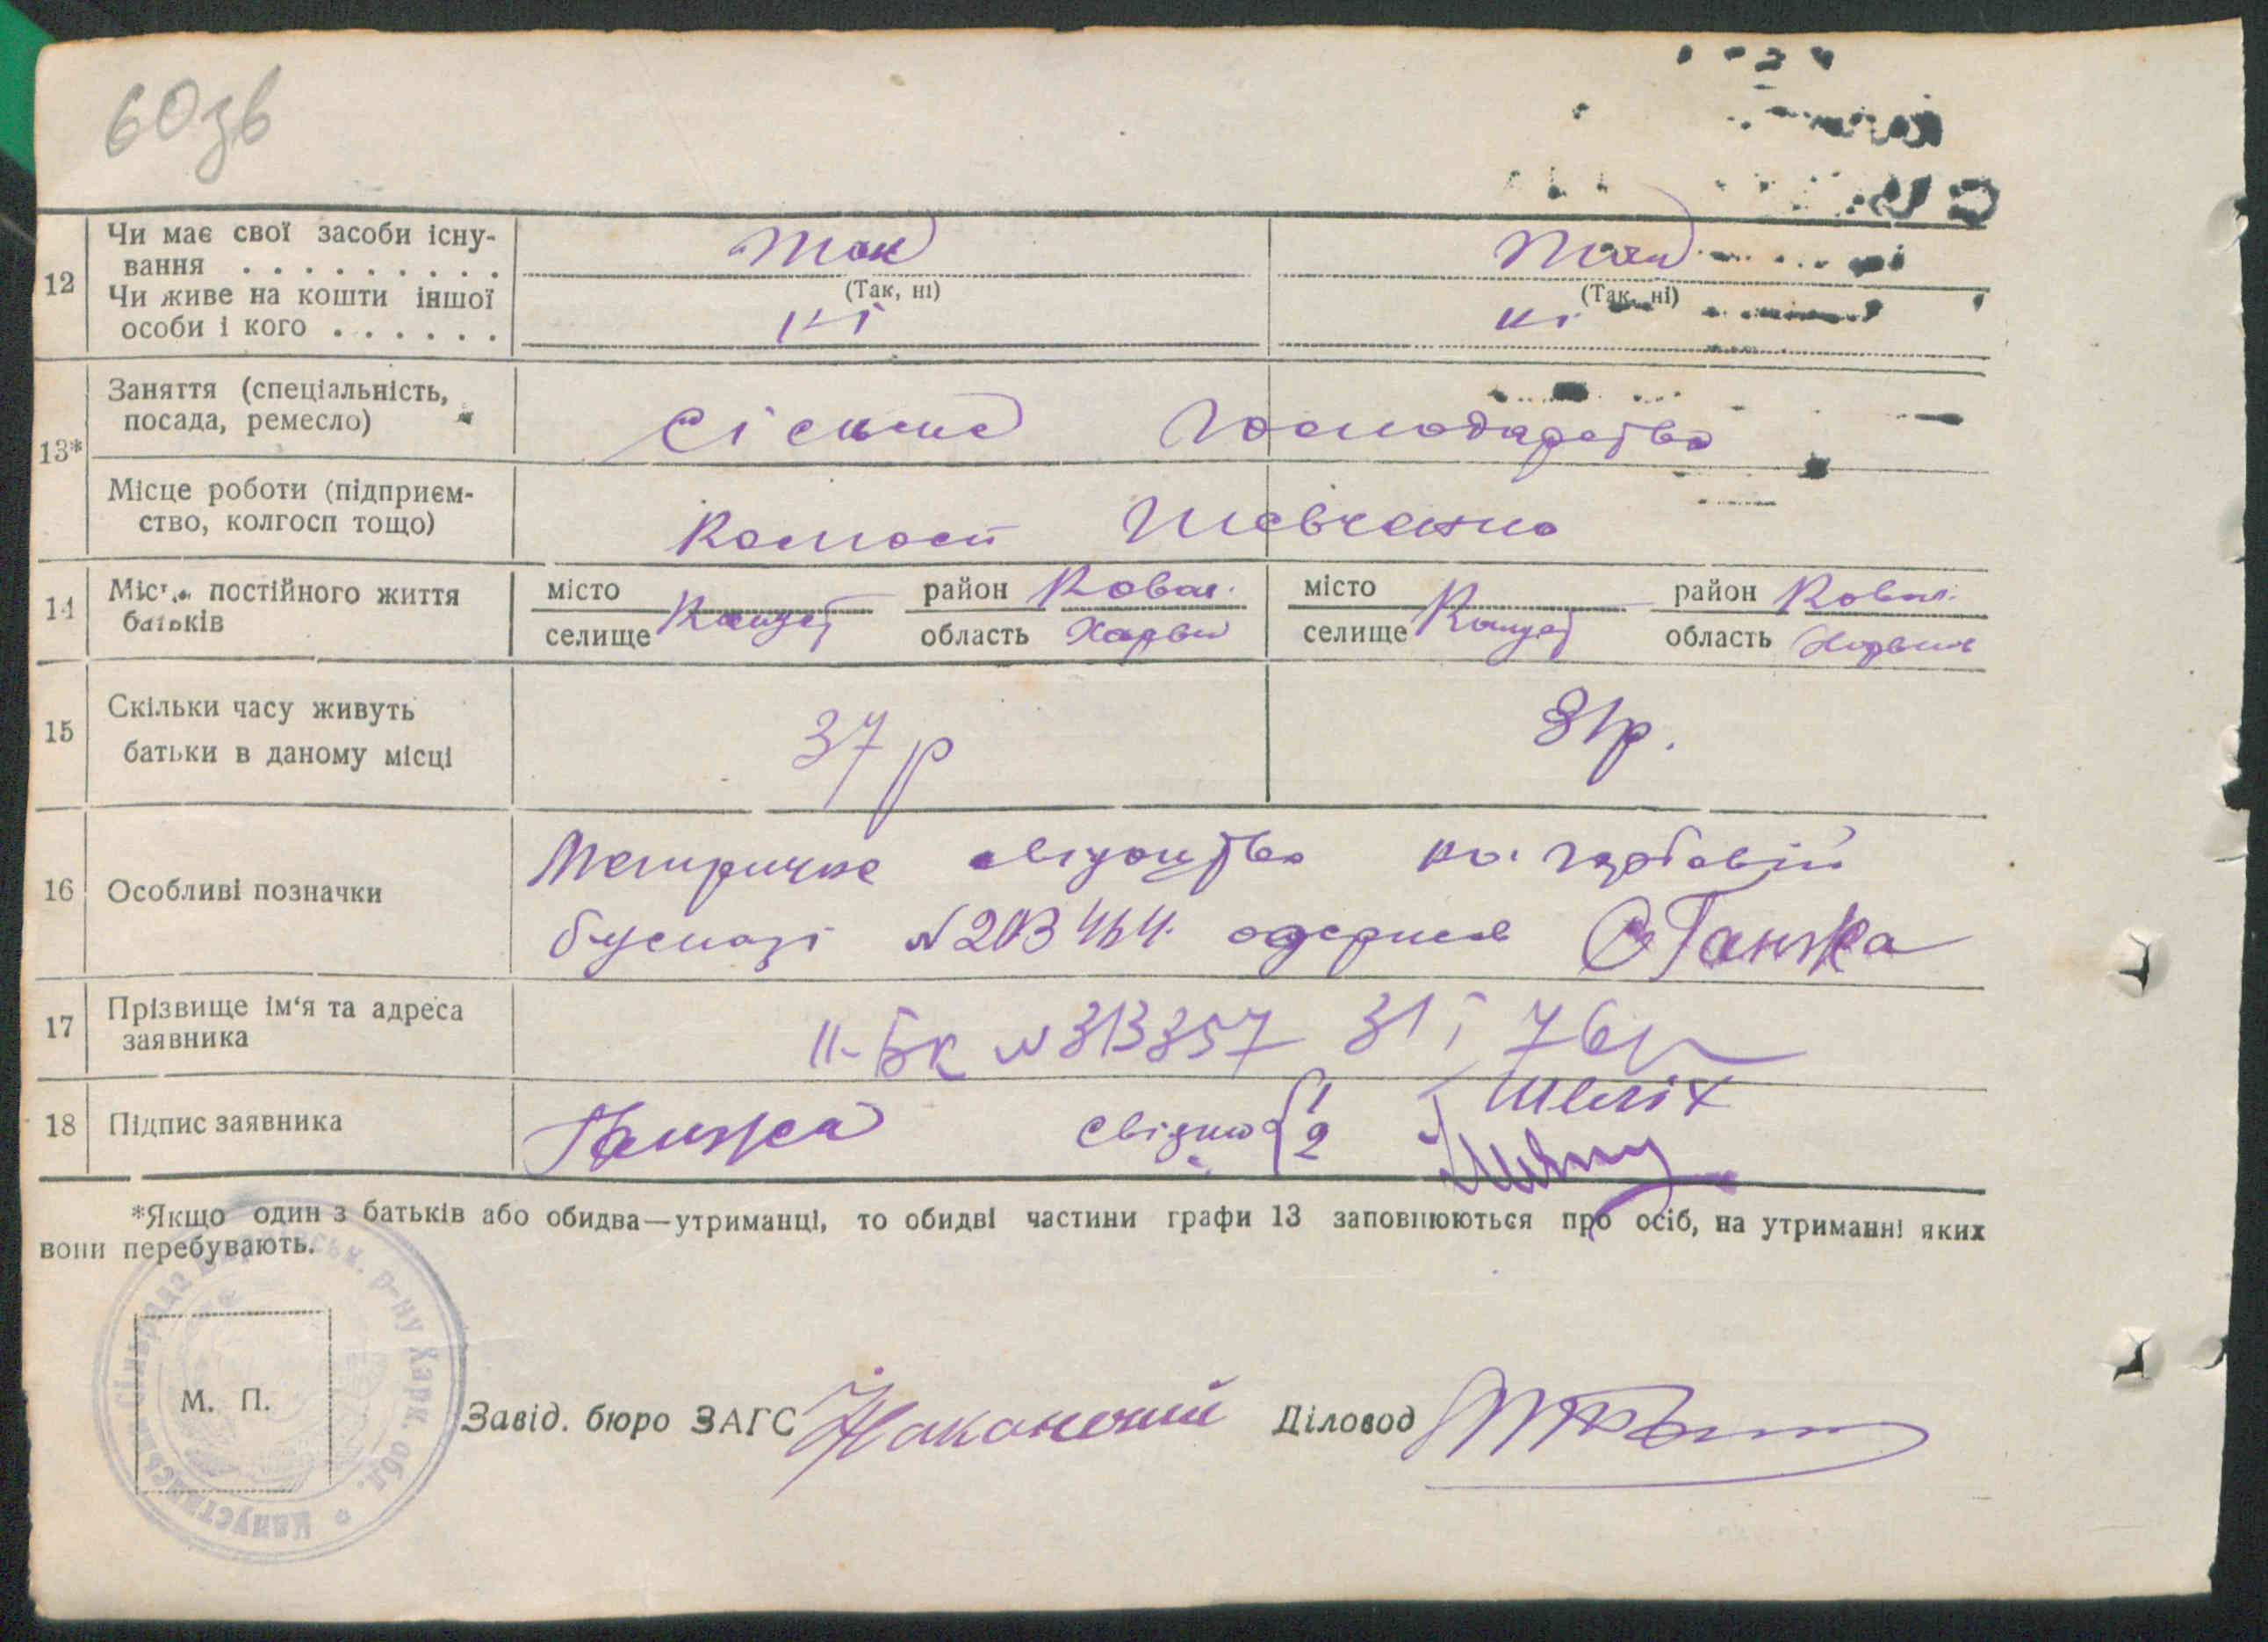 60зв
12 Чи має свої засоби існу-
вання . . . . . . . . . Так Так
(Так, ні) (Так, ні)
Чи живе на кошти іншої
особи і кого . . . . . . ні ні
13* Заняття (спеціальність,
посада, ремесло) Сільське Господарство
Місце роботи (підприєм-
ство, колгосп тощо) Колгосп Шевченко
14 Місце постійного життя
батьків
місто район Ковал. місто район Ковал.
селище Капуст область Харків селище Капуст область
15 Скільки часу живуть
батьки в даному місці 37 р 31р.
16 Особливі позначки Метричне свідоцтво на гербовій
бумазі №203464 одержав Ганжа
17 Прізвище ім'я та адреса
заявника II-БК №313357 31 і
18 Підпис заявника Ганжа свідки 1
2
*Якщо один з батьків або обидва—утриманці, то обидві частини графи 13 заповнюються про осіб, на утриманні яких
вони перебувають.
р-ну Харк. обл.
М. П.
Завід. бюро ЗАГС Діловод